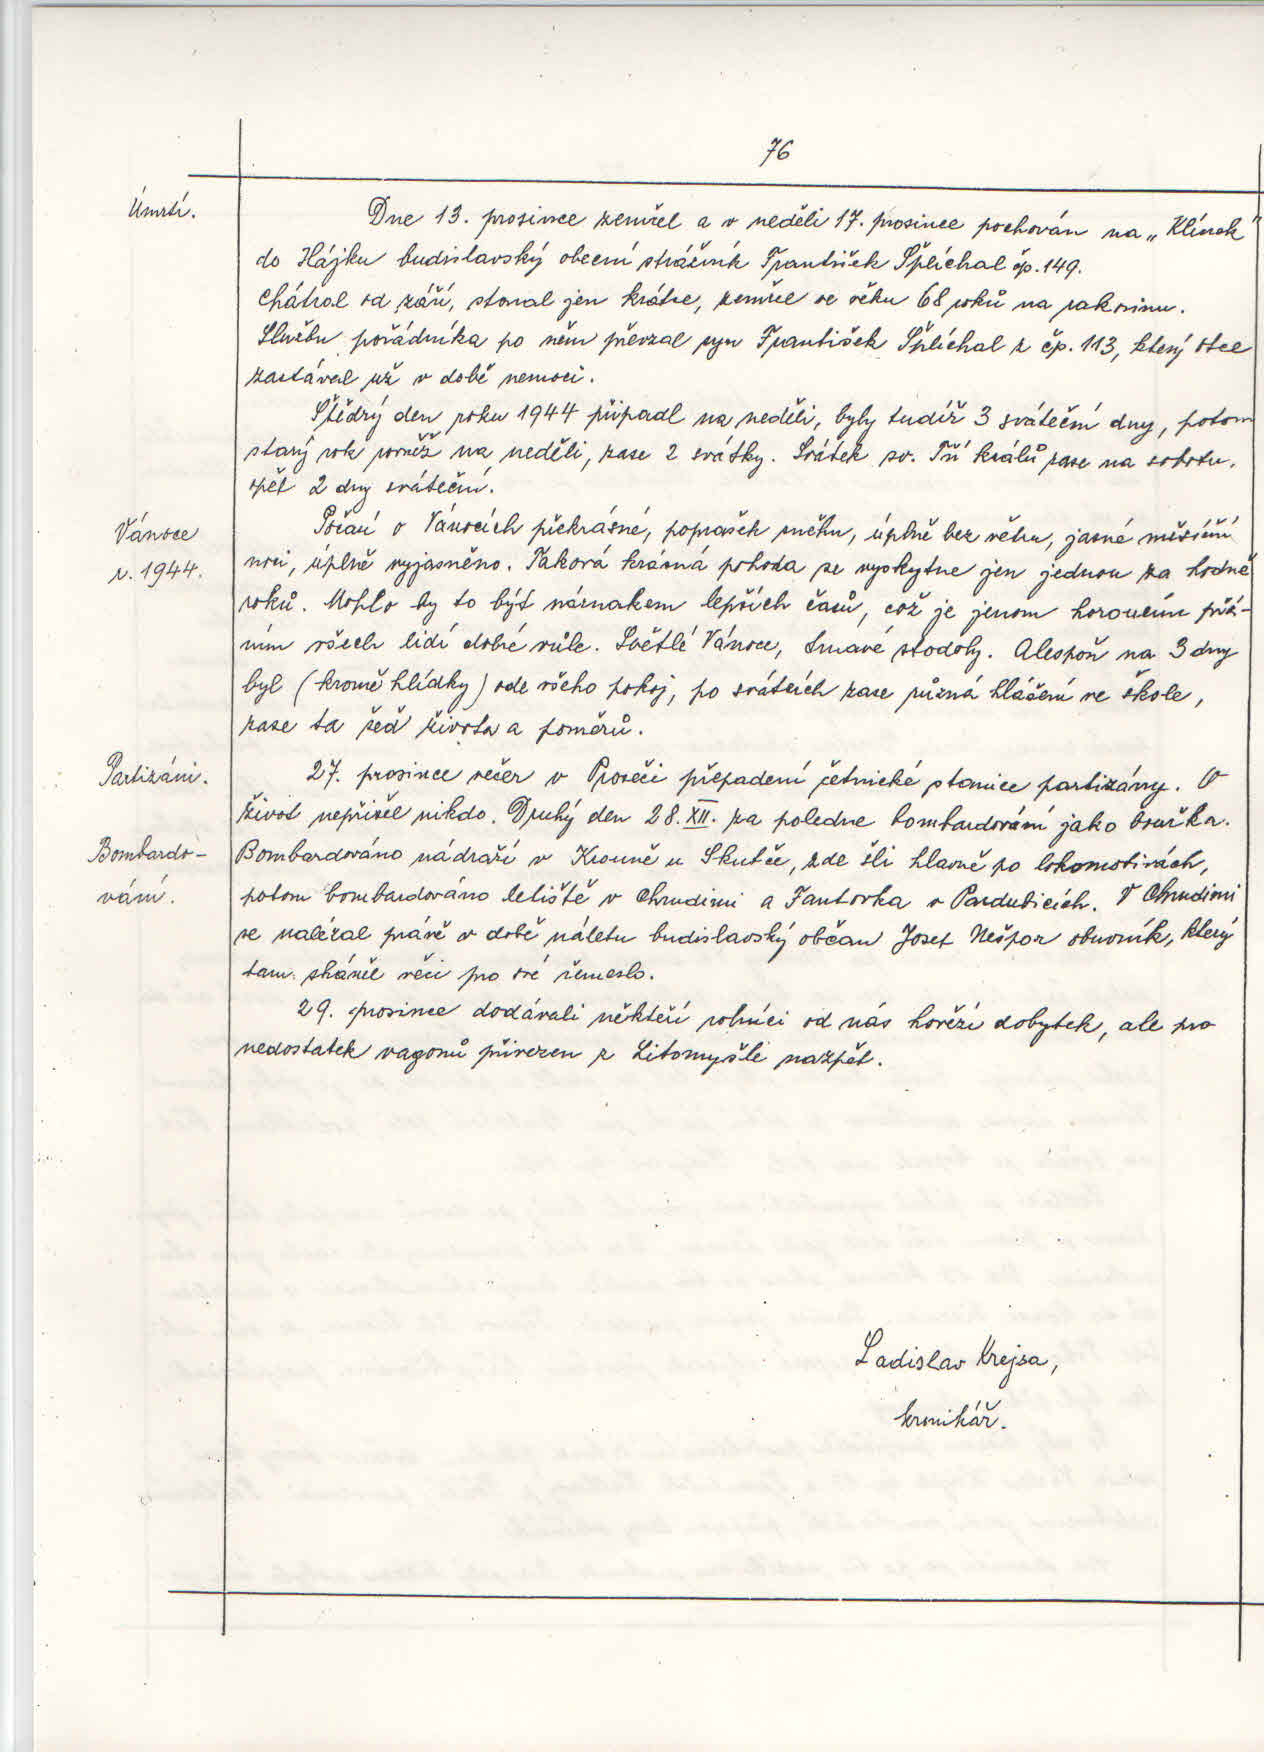 76
Úmrtí.
Dne 13. prosince zemřel a v neděli 17. prosince pochován na „Klínek"
do Hájku budislavský obecní strážník František Šplíchal čp. 149.
Chátral od září, stonal jen krátce, zemřel ve věku 68 roků na rakovinu.
Službu pořádníka po něm převzal syn František Šplíchal z čp. 113, který otce
zastával už v době nemoci.
Štědrý den roku 1944 připadl na neděli, byly tudíž 3 sváteční dny, potom
starý rok rovněž na neděli, zase 2 svátky. Svátek sv. Tří králů zase na sobotu,
opět 2 dny sváteční.
Vánoce
r. 1944.
Počasí o Vánocích překrásné, poprašek sněhu, úplně bez větru, jasné měsíční
noci, úplně vyjasněno. Taková krásná pohoda se vyskytne jen jednou za hodně
roků. Mohlo by to být náznakem lepších časů, což je jenom horoucím přá-
ním všech lidí dobré vůle. Světlé Vánoce, tmavé stodoly. Alespoň na 3 dny
byl (kromě hlídky) ode všeho pokoj, po svátcích zase různá hlášení ve škole,
zase ta šeď života a poměrů.
Partizáni.
27. prosince večer v Proseči přepadení četnické stanice partizány. O
život nepřišel nikdo. Druhý den 28. XII. za poledne bombardování jako bouřka.
Bombardo-
vání.
Bombardováno nádraží v Krouně u Skutče, zde šli hlavně po lokomotivách,
potom bombardováno letiště v Chrudimi a Fantovka v Pardubicích. V Chrudimi
se nalézal právě v době náletu budislavský občan Josef Nešpor obuvník, který
tam sháněl věci pro své řemeslo.
29. prosince dodávali někteří rolníci od nás hovězí dobytek, ale pro
nedostatek vagonů přivezen z Litomyšle nazpět.
Ladislav Krejsa,
kronikář.